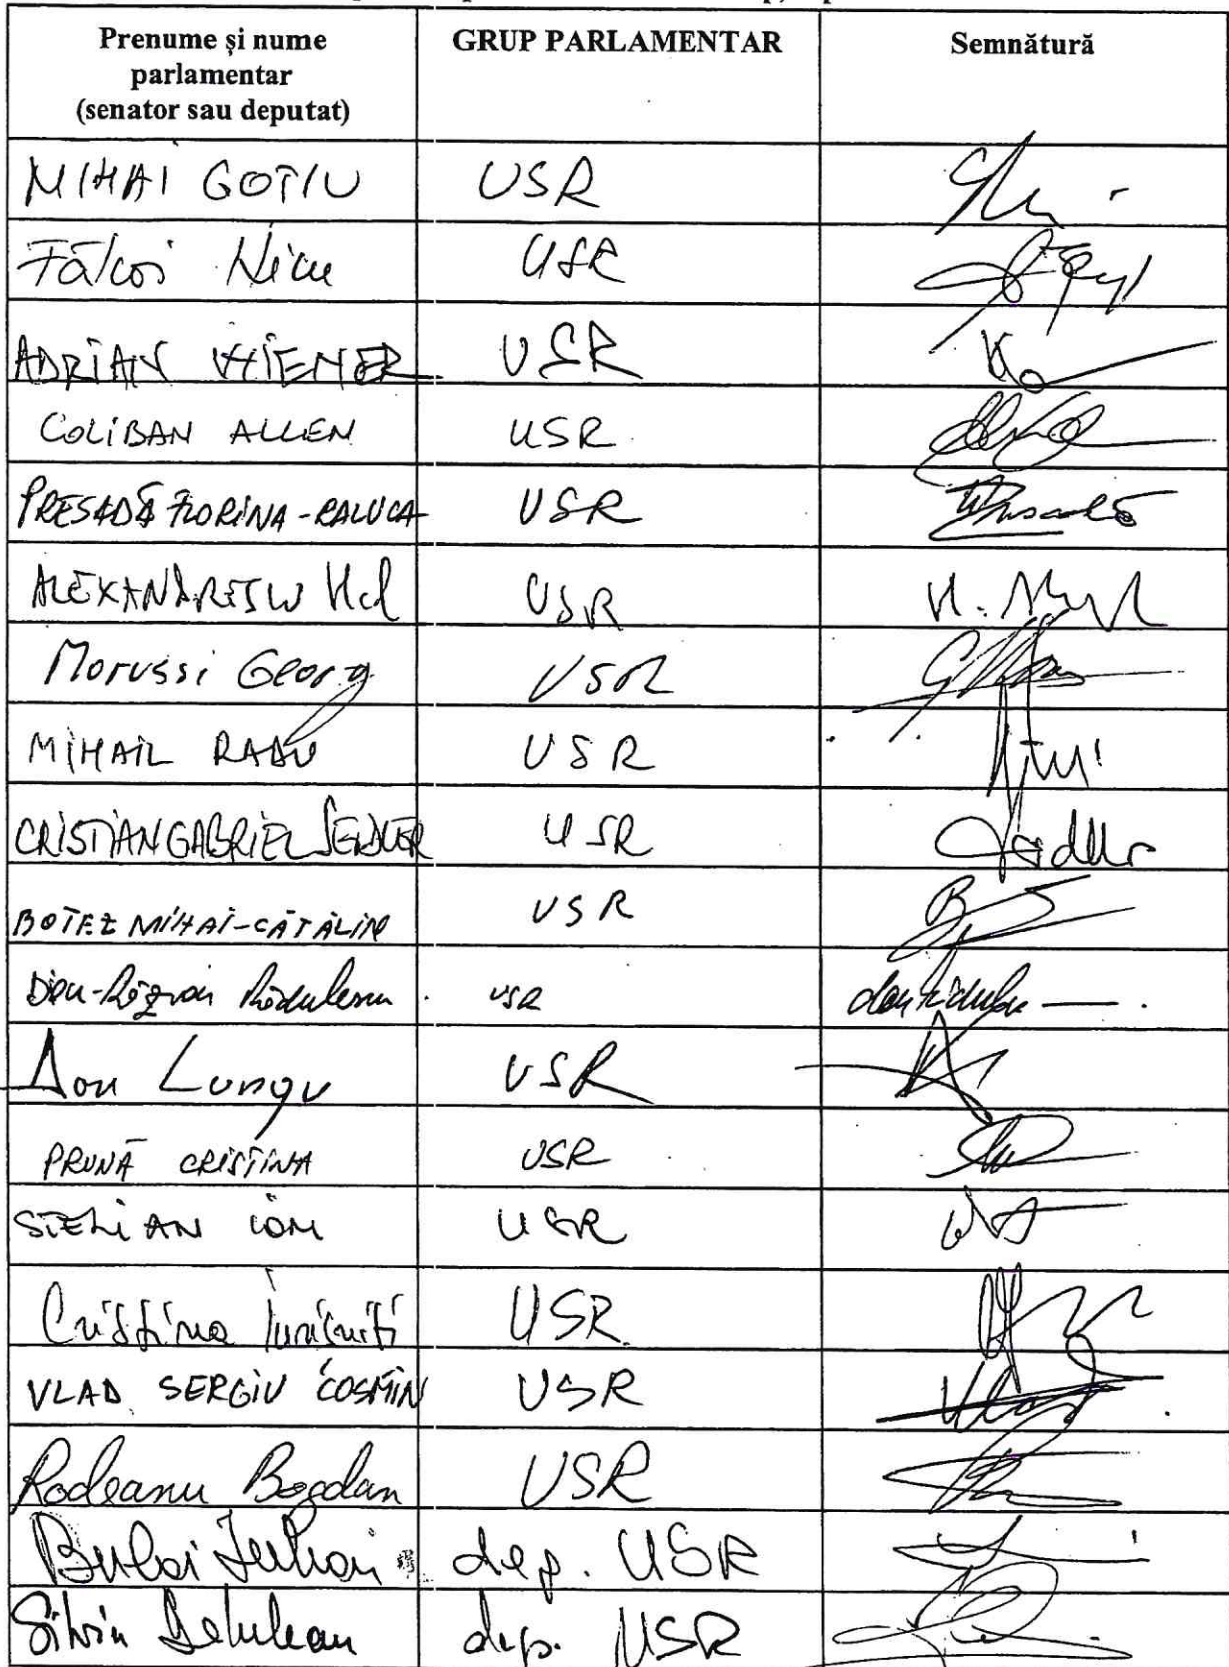 Prenume și nume parlamentar (senator sau deputat) GRUP PARLAMENTAR Semnătură
MIHAI GOȚIU USR
Fălcoi Nicu USR
ADRIAN WIENER USR
COLIBAN ALLEN USR
PRESADĂ FLORINA-RALUCA USR
ALEXANDRESCU USR
Morussi Georg USR
MIHAIL RADU USR
CRISTIAN GABRIEL SEIDLER USR
BOTEZ MIHAI-CĂTĂLIN USR
Dan-Răzvan Rădulescu USR
Dan Lungu USR
PRUNĂ CRISTINA USR
STELIAN ION USR
Cristina Iurișniți USR
VLAD SERGIU COSMIN USR
Rodeanu Bogdan USR
Bulai Iulian dep. USR
Silviu Dehelean dep. USR